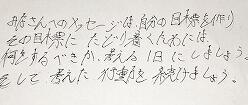 お母さんへのメッセージは、自分の目標を作り
その目標に たどり着くためには、
何をするべきか、考える1日にしましょう。
そして、考えた 行動を 続けましょう。